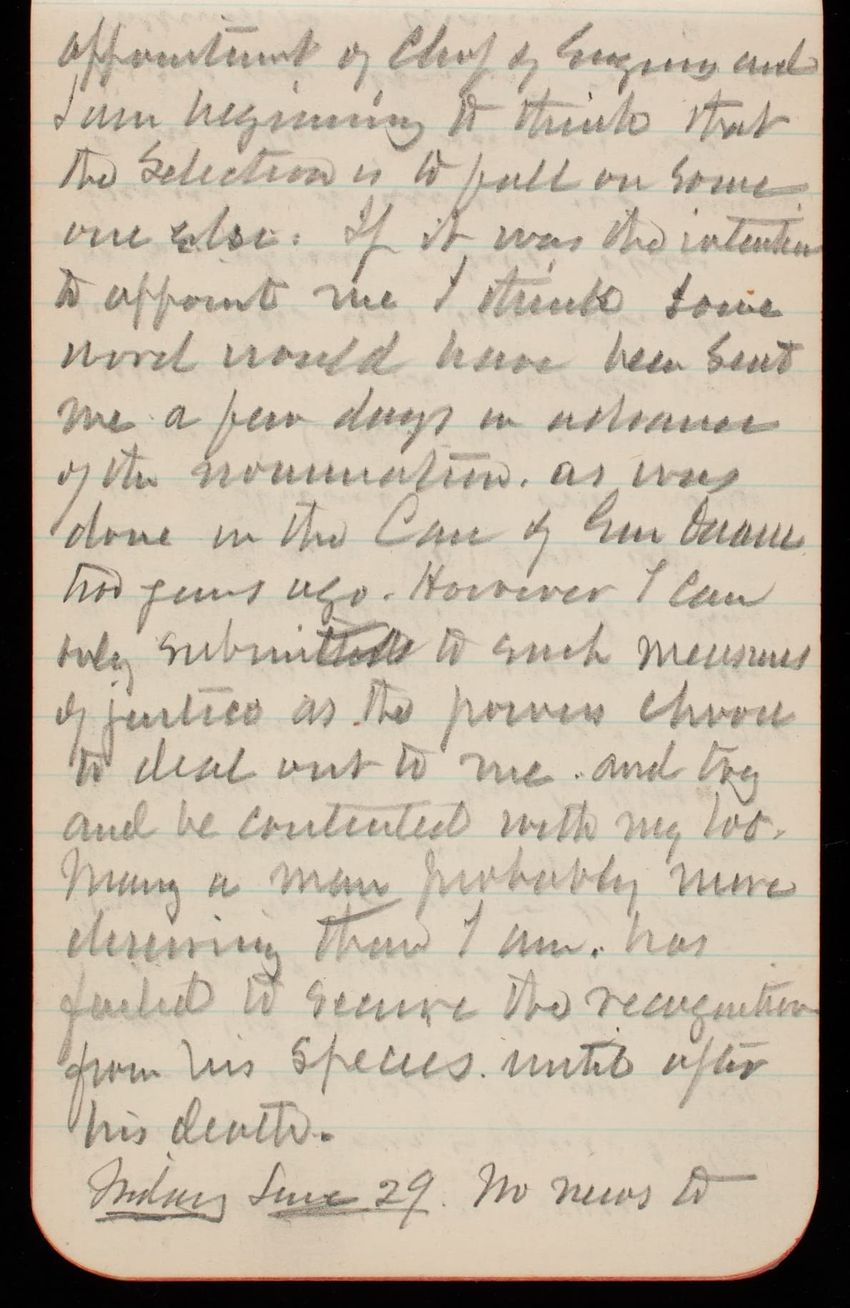 appointment of Chief of Engins and
I am beginning to think that
the Selection is to fall on Some
one else. If it was the intention
to appoint me I think Some
word would have been Sent
me a few days in advance
of the nomination. as was
done in the Case of Gen Duane
two years ago. However I can
only submit to such measures
of justice as the powers choose
to deal out to me. and try
and be contented with my lot.
Many a man probably more
deserving than I am. has
failed to secure the recognition
from his Species. until after
his death.
Friday June 29. No news to